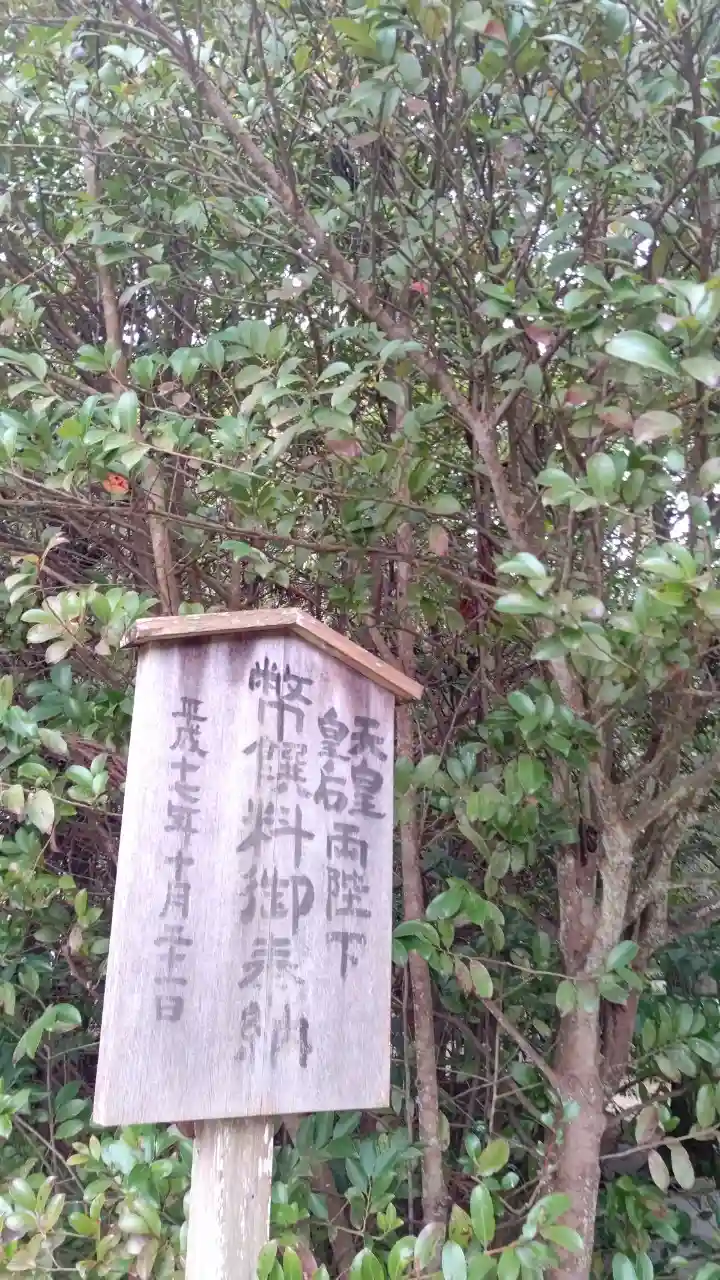 天皇
皇后
両陛下
幣饌料御奉納
平成十七年十月三十一日